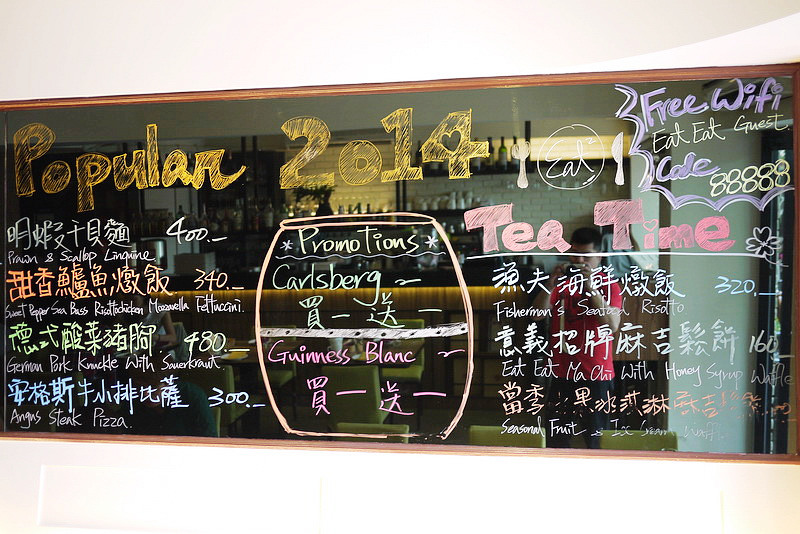 Popular 2014
明蝦干貝麵 400.—
Prawn & Scallop Linguine
甜香鱸魚燉飯 340.—
Sweet Pepper Sea Bass Risotto chicken Mozzarella Fettuccini.
德式酸菜豬腳 480.—
German Pork Knuckle With Sauerkraut.
安格斯牛小排比薩 300.—
Angus Steak Pizza.
Promotions
Carlsberg
買一送一
Guinness Blanc
買一送一
Eat²
Free Wifi
Eat Eat Guest.
Code
88888
Tea Time
漁夫海鮮燉飯 320.—
Fisherman's Seafood Risotto
意義招牌麻吉鬆餅 160
Eat Eat Ma Chi With Honey Syrup Waffle
當季水果冰淇淋
Seasonal Fruit & Ice Cream